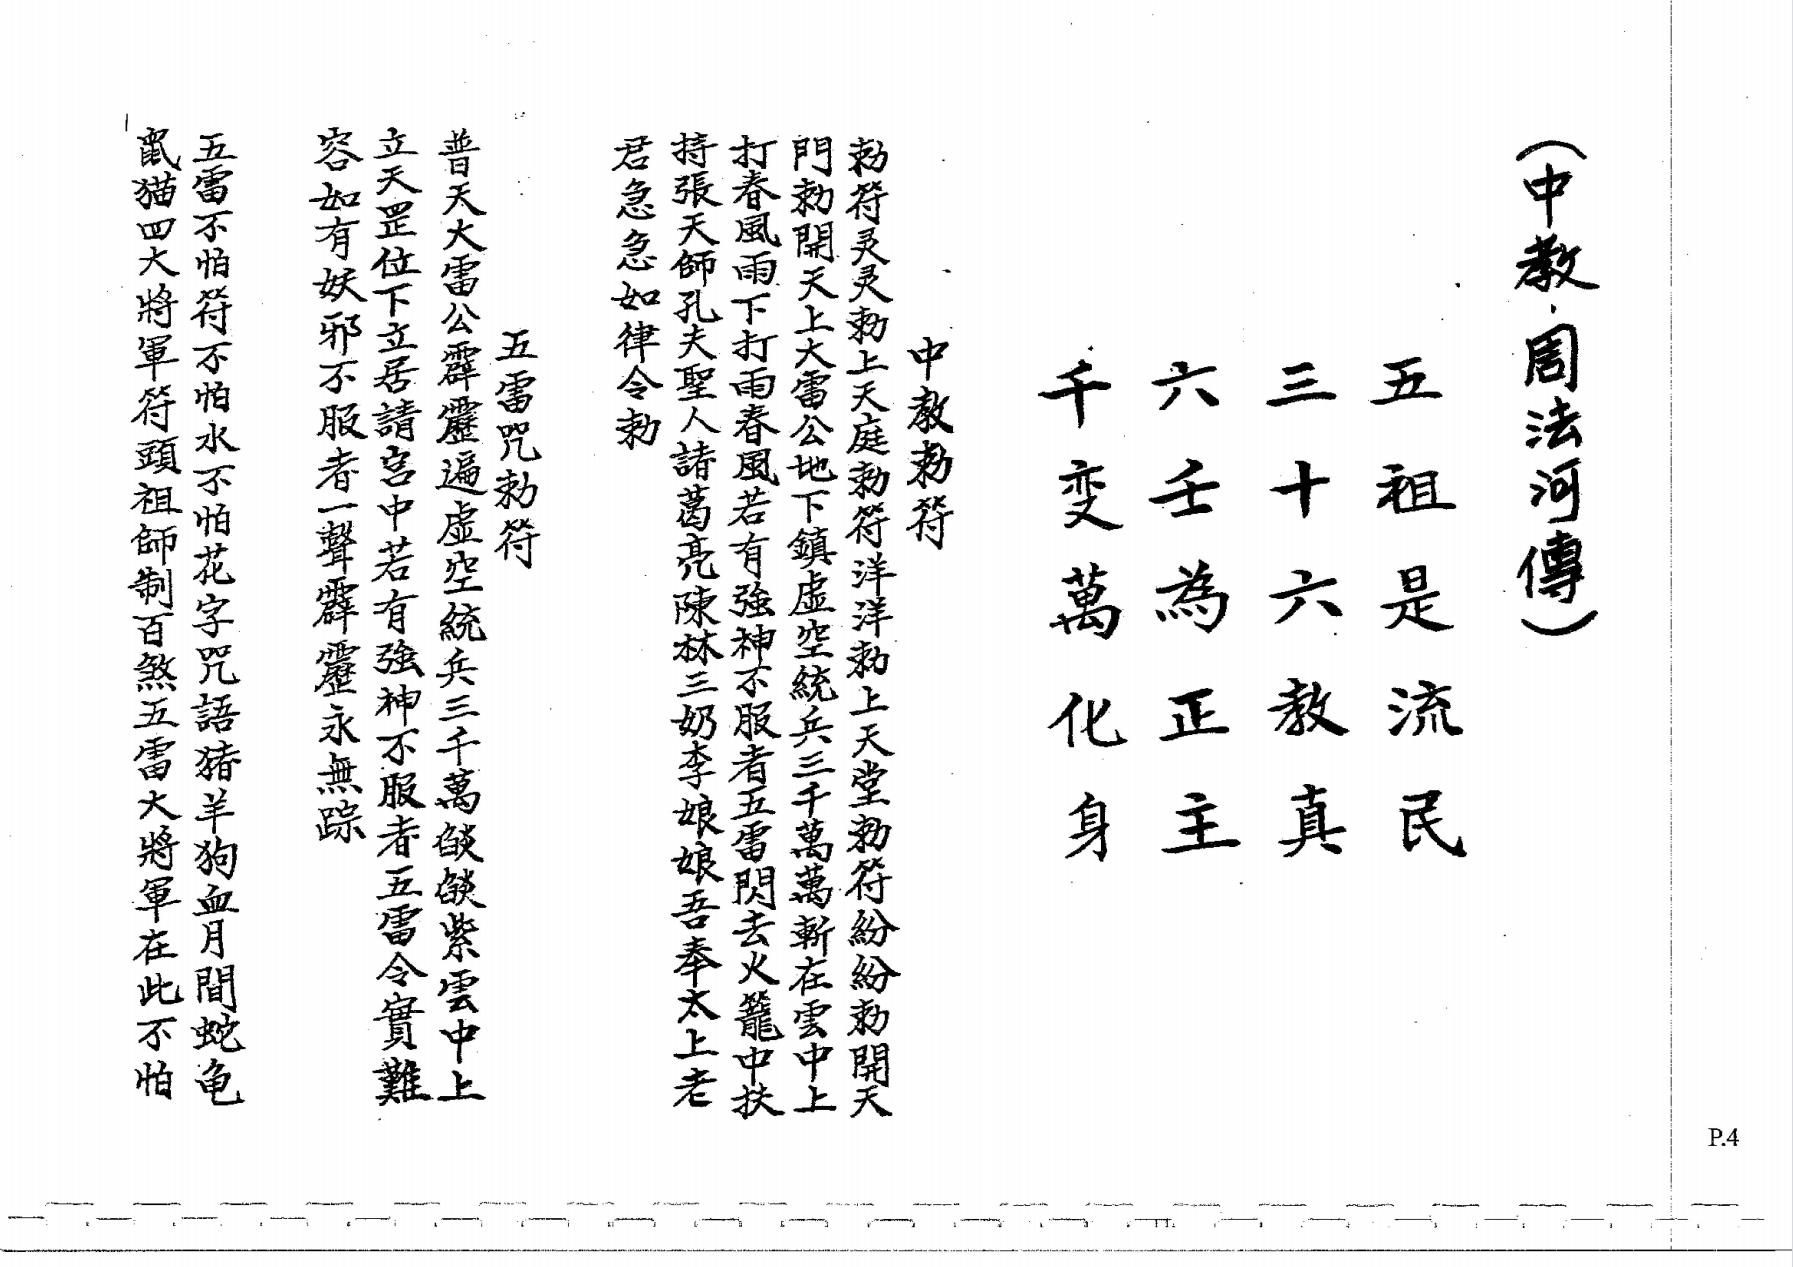 (中教.周法河傳)
五祖是流民
三十六教真
六壬為正主
千变萬化身
中教勅符
勅符灵灵勅上天庭勅符洋洋勅上天堂勅符紛紛勅開天
門勅開天上大雷公地下鎮虛空統兵三千萬萬斬在雲中上
打春風雨下打雨春風若有強神不服者五雷閃去火籠中扶
持張天師孔夫聖人諸葛亮陳林三奶李娘娘吾奉太上老
君急急如律令勅
五雷咒勅符
普天大雷公霹靂遍虛空統兵三千萬燄燄紫雲中上
立天罡位下立居請宮中若有強神不服者五雷令實難
容如有妖邪不服者一聲霹靂永無踪
五雷不怕符不怕水不怕花字咒語猪羊狗血月間蛇龟
鼠猫四大將軍符頭祖師制百煞五雷大將軍在此不怕
P.4